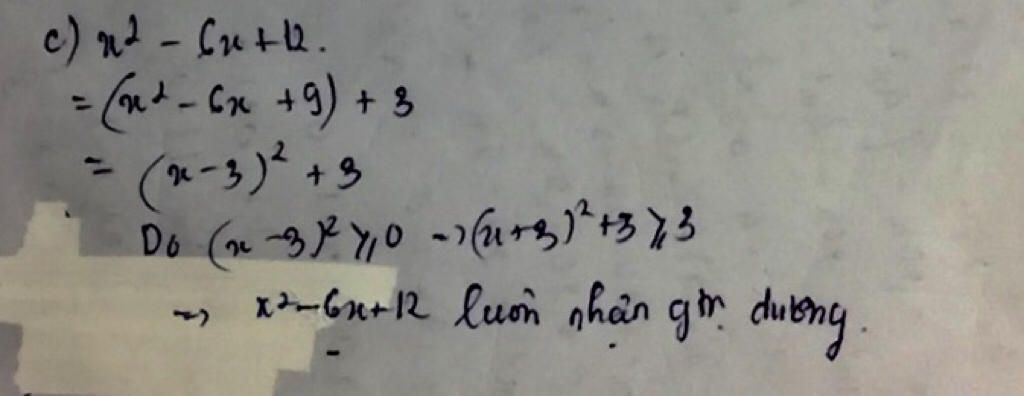 c) x² - 6x + 12.
= (x² - 6x + 9) + 3
= (x - 3)² + 3
Do (x - 3)² ⩾ 0 → (x + 3)² + 3 ⩾ 3
→ x² - 6x + 12 luôn nhận gtr dương.